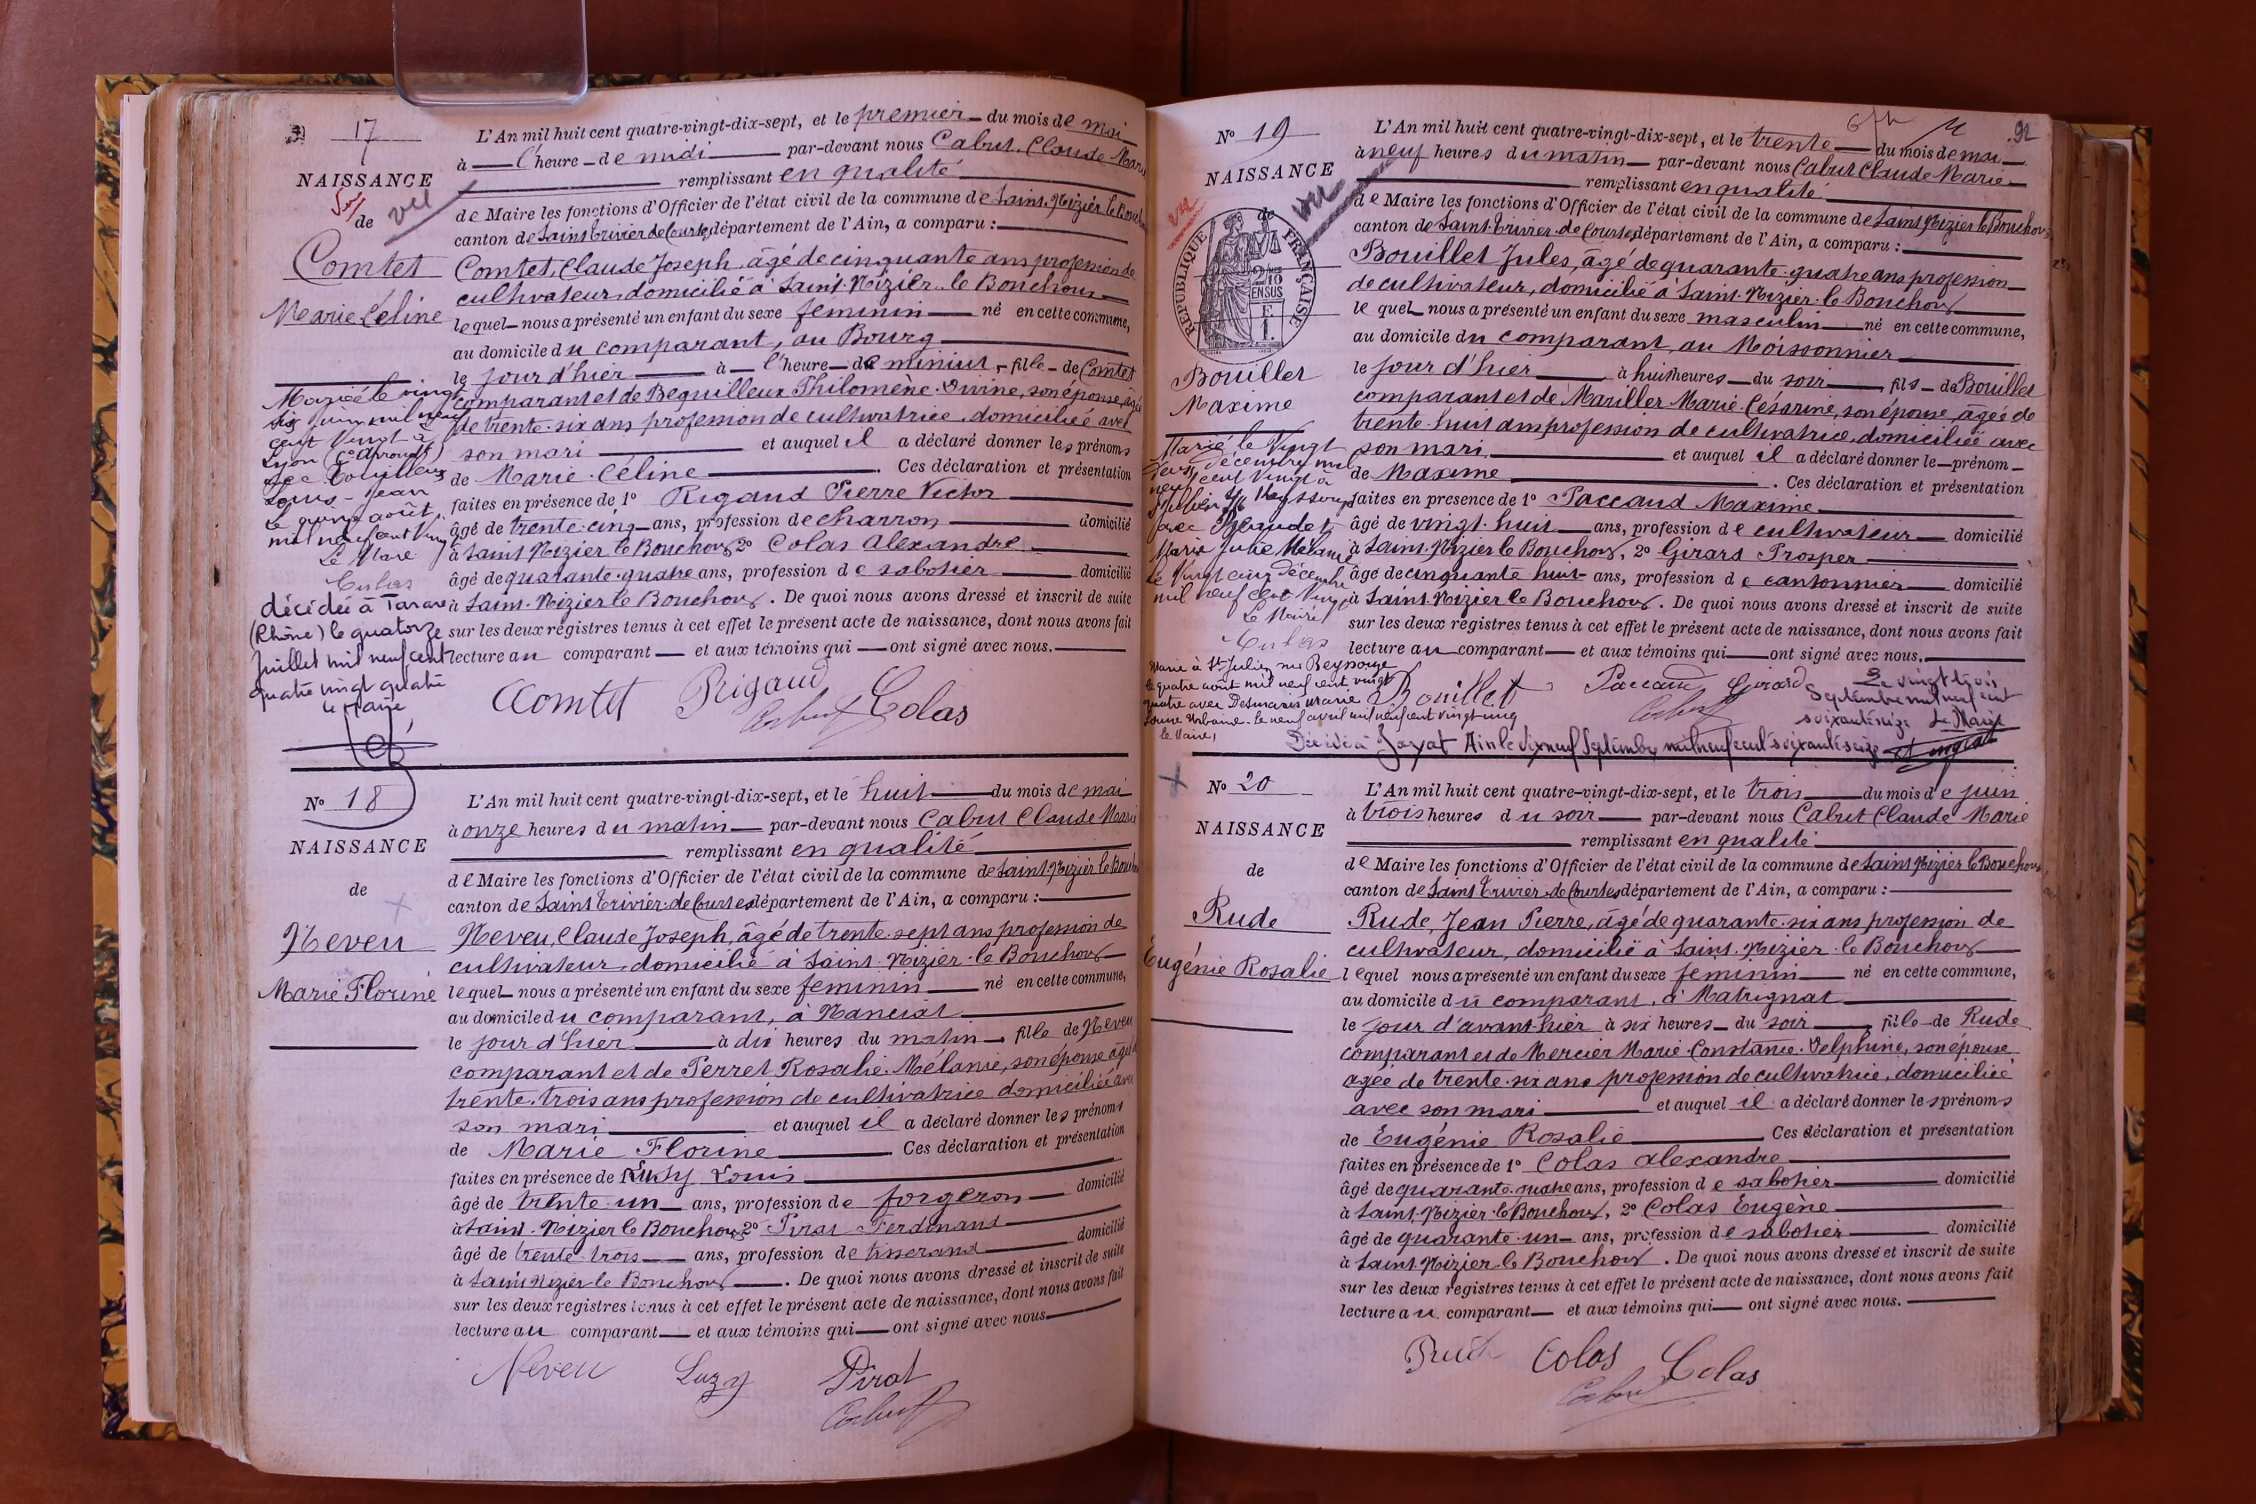 17
NAISSANCE
de
vu
Comtet
Marie Céline
Marié le vingt
six juin mil neuf
cent vingt à
Lyon (
Louis - Jean
Le quinze août
mil neuf cent vingt
Le Maire
décédée à Tarare
(Rhône) le quatorze
juillet mil neuf cent
quatre vingt quatre
Le Maire
L'An mil huit cent quatre-vingt-dix-sept, et le premier du mois de mai
à l'heure de midi par-devant nous Cabut Claude Marie
remplissant en qualité
de Maire les fonctions d'Officier de l'état civil de la commune de Saint-Nizier le Bouchoux
canton de Saint Trivier de Courtes, département de l'Ain, a comparu :
Comtet, Claude Joseph, âgé de cinquante ans profession de
cultivateur, domicilié à Saint-Nizier-le Bouchoux
lequel nous a présenté un enfant du sexe féminin né en cette commune,
au domicile du comparant, au Bourg
le jour d'hier à l'heure de minuit, fille de Comtet
comparant et de Bequilleux Philomène Divine, son épouse, âgée
de trente-six ans profession de cultivatrice, domiciliée avec
son mari et auquel il a déclaré donner les prénoms
de Marie-Céline . Ces déclaration et présentation
faites en présence de 1º Rigaud Pierre Victor
âgé de trente-cinq ans, profession de charron domicilié
à Saint Nizier le Bouchoux, 2º Colas Alexandre
âgé de quarante-quatre ans, profession de sabotier domicilié
à Saint-Nizier le Bouchoux. De quoi nous avons dressé et inscrit de suite
sur les deux registres tenus à cet effet le présent acte de naissance, dont nous avons fait
lecture au comparant et aux témoins qui ont signé avec nous.
Comtet Rigaud Colas
Cabut
Nº 18
NAISSANCE
de
Neveu
Marie Florine
L'An mil huit cent quatre-vingt-dix-sept, et le huit du mois de mai
à onze heures du matin par-devant nous Cabut Claude Marie
remplissant en qualité
de Maire les fonctions d'Officier de l'état civil de la commune de Saint-Nizier le Bouchoux
canton de Saint Trivier-de Courtes département de l'Ain, a comparu :
Neveu, Claude Joseph, âgé de trente-sept ans profession de
cultivateur, domicilié à Saint-Nizier-le Bouchoux
lequel nous a présenté un enfant du sexe féminin né en cette commune,
au domicile du comparant, à Manciat
le jour d'hier à dix heures du matin, fille de Neveu
comparant et de Perret Rosalie-Mélanie, son épouse âgée
trente-trois ans profession de cultivatrice domiciliée avec
son mari et auquel il a déclaré donner les prénoms
de Marie Florine . Ces déclaration et présentation
faites en présence de Luzy Louis
âgé de trente-un ans, profession de forgeron domicilié
à Saint-Nizier le Bouchoux 2º Pirat Ferdinand
âgé de trente-trois ans, profession de tisserand domicilié
à Saint Nizier le Bouchoux . De quoi nous avons dressé et inscrit de suite
sur les deux registres tenus à cet effet le présent acte de naissance, dont nous avons fait
lecture au comparant et aux témoins qui ont signé avec nous
Neveu Luzy Pirat
Cabut
92
Nº 19
NAISSANCE
de
vu
vu
RÉPUBLIQUE FRANÇAISE
2/10
EN SUS
Bouillet
Maxime
Marié le Vingt
deux décembre mil
neuf cent vingt à
St Julien s/ Reyssouze
avec
Marie Julie Mélanie
le vingt cinq décembre
mil neuf cent vingt
Le Maire
Marié à St Julien sur Reyssouze
le quatre août mil neuf cent vingt
quatre avec Desmaris Marie
le neuf avril mil neuf cent vingt cinq
le Maire,
L'An mil huit cent quatre-vingt-dix-sept, et le trente du mois de mai
à neuf heures du matin par-devant nous Cabut Claude Marie
remplissant en qualité
de Maire les fonctions d'Officier de l'état civil de la commune de Saint Nizier le Bouchoux
canton de Saint-Trivier-de Courtes, département de l'Ain, a comparu :
Bouillet Jules, âgé de quarante-quatre ans profession
de cultivateur, domicilié à Saint-Nizier-le Bouchoux
lequel nous a présenté un enfant du sexe masculin né en cette commune,
au domicile du comparant, au Moissonnier
le jour d'hier à huit heures du soir, fils de Bouillet
comparant et de Mariller Marie-Césarine, son épouse, âgée de
trente-huit ans profession de cultivatrice, domiciliée avec
son mari et auquel il a déclaré donner le prénom
de Maxime . Ces déclaration et présentation
faites en présence de 1º Paccaud Maxime
âgé de vingt-huit ans, profession de cultivateur domicilié
à Saint-Nizier le Bouchoux, 2º Girard Prosper
âgé de cinquante-huit ans, profession de cantonnier domicilié
à Saint-Nizier le Bouchoux. De quoi nous avons dressé et inscrit de suite
sur les deux registres tenus à cet effet le présent acte de naissance, dont nous avons fait
lecture au comparant et aux témoins qui ont signé avec nous.
Bouillet Paccaud Girard
Cabut
Le vingt trois
Septembre mil neuf cent
soixante seize Le Maire
Décédé à Jayat Ain le dix neuf Septembre mil neuf cent soixante seize
Nº 20
NAISSANCE
de
Rude
Eugénie Rosalie
L'An mil huit cent quatre-vingt-dix-sept, et le trois du mois de juin
à trois heures du soir par-devant nous Cabut Claude Marie
remplissant en qualité
de Maire les fonctions d'Officier de l'état civil de la commune de Saint Nizier le Bouchoux
canton de Saint Trivier-de Courtes département de l'Ain, a comparu :
Rude, Jean Pierre, âgé de quarante-six ans profession de
cultivateur, domicilié à Saint-Nizier-le Bouchoux
lequel nous a présenté un enfant du sexe féminin né en cette commune,
au domicile du comparant, à Matrignat
le jour d'avant-hier à six heures du soir, fille de Rude
comparant et de Mercier Marie-Constance-Delphine, son épouse
âgée de trente-six ans profession de cultivatrice, domiciliée
avec son mari et auquel il a déclaré donner les prénoms
de Eugénie Rosalie Ces déclaration et présentation
faites en présence de 1º Colas Alexandre
âgé de quarante-quatre ans, profession de sabotier domicilié
à Saint-Nizier-le Bouchoux, 2º Colas Eugène
âgé de quarante-un ans, profession de sabotier domicilié
à Saint-Nizier-le Bouchoux. De quoi nous avons dressé et inscrit de suite
sur les deux registres tenus à cet effet le présent acte de naissance, dont nous avons fait
lecture au comparant et aux témoins qui ont signé avec nous.
Rude Colas Colas
Cabut